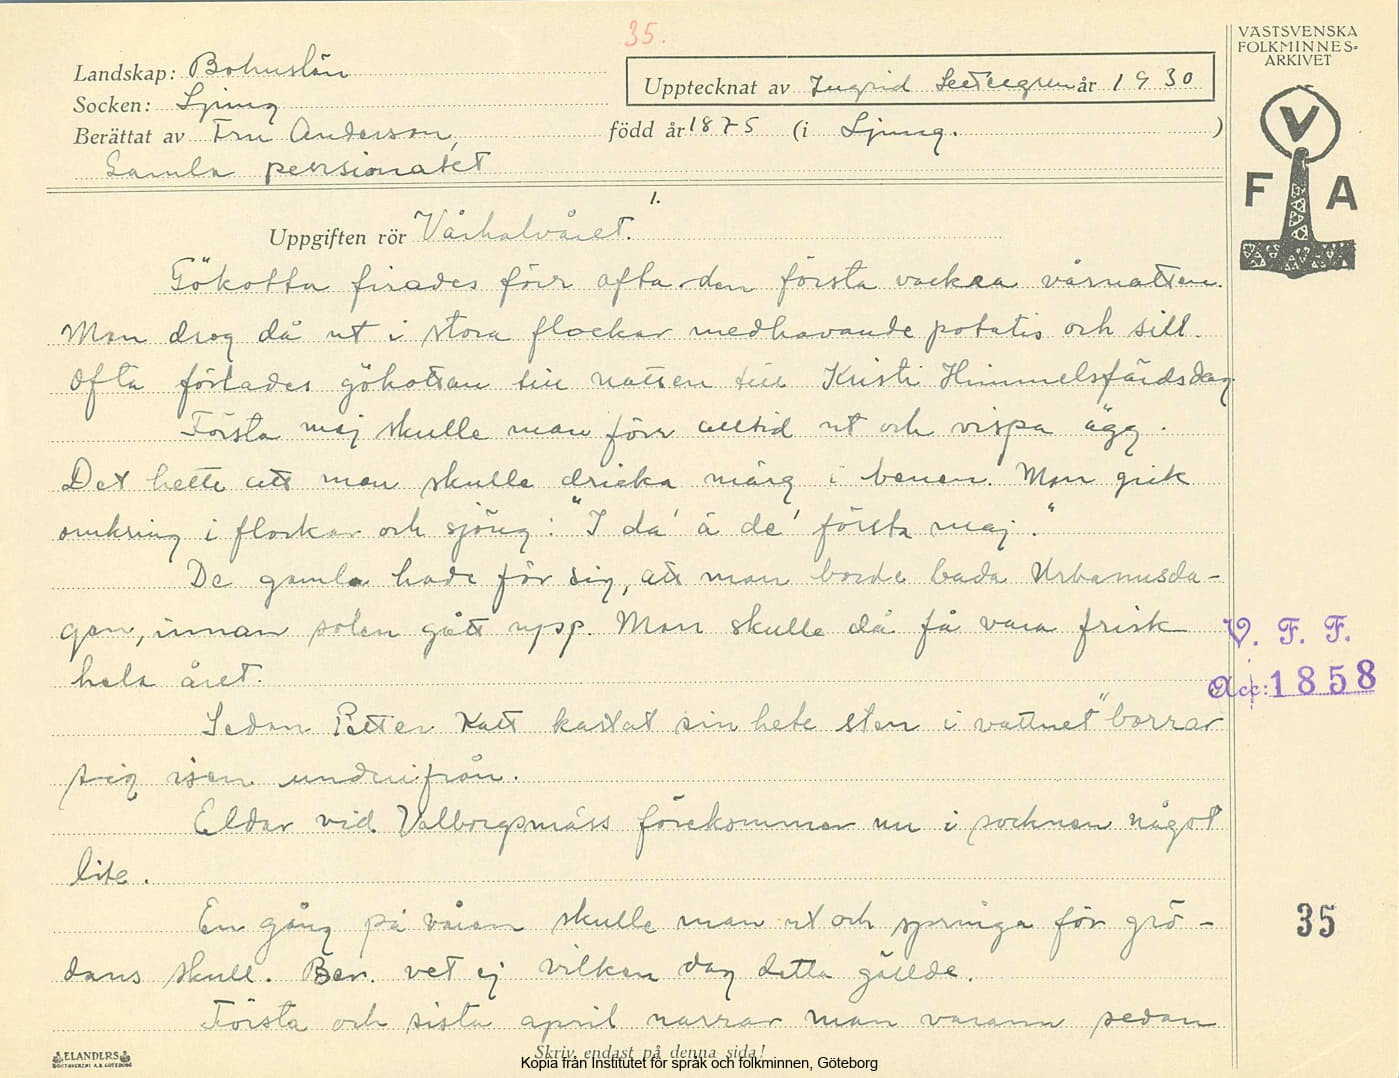 35.
VÄSTSVENSKA
FOLKMINNES-
ARKIVET
Landskap: Bohuslän
Upptecknat av Ingrid år 1930
Socken: Ljung
Berättat av Fru Anderson, född år 1875 (i Ljung. )
Gamla pensionatet
V
F A
1.
Uppgiften rör Vårhalvåret.
Gökotta firades förr ofta den första vackra vårnatten.
Man drog då ut i stora flockar medhavande potatis och sill.
Ofta förlades gökottan till natten till Kristi Himmelsfärdsdag
Första maj skulle man förr alltid ut och vispa ägg.
Det hette att man skulle dricka märg i benen. Man gick
omkring i flockar och sjöng: "I da' ä de' första maj."
De gamla hade för sig, att man borde bada Urbanusda-
gen, innan solen gått upp. Man skulle då få vara frisk
hela året.
V. F. F.
Acc: 1858
Sedan Petter Katt kastat sin hete sten i vattnet "borrar
sig isen underifrån.
Eldar vid Valborgsmäss förekommer nu i socknen något
lite.
En gång på våren skulle man ut och springa för grö-
dans skull. Ber. vet ej vilken dag detta gällde.
35
Första och sista april narrar man varann sedan
Skriv endast på denna sida!
ELANDERS
BOKTRYCKERI A.B. GÖTEBORG
Kopia från Institutet för språk och folkminnen, Göteborg